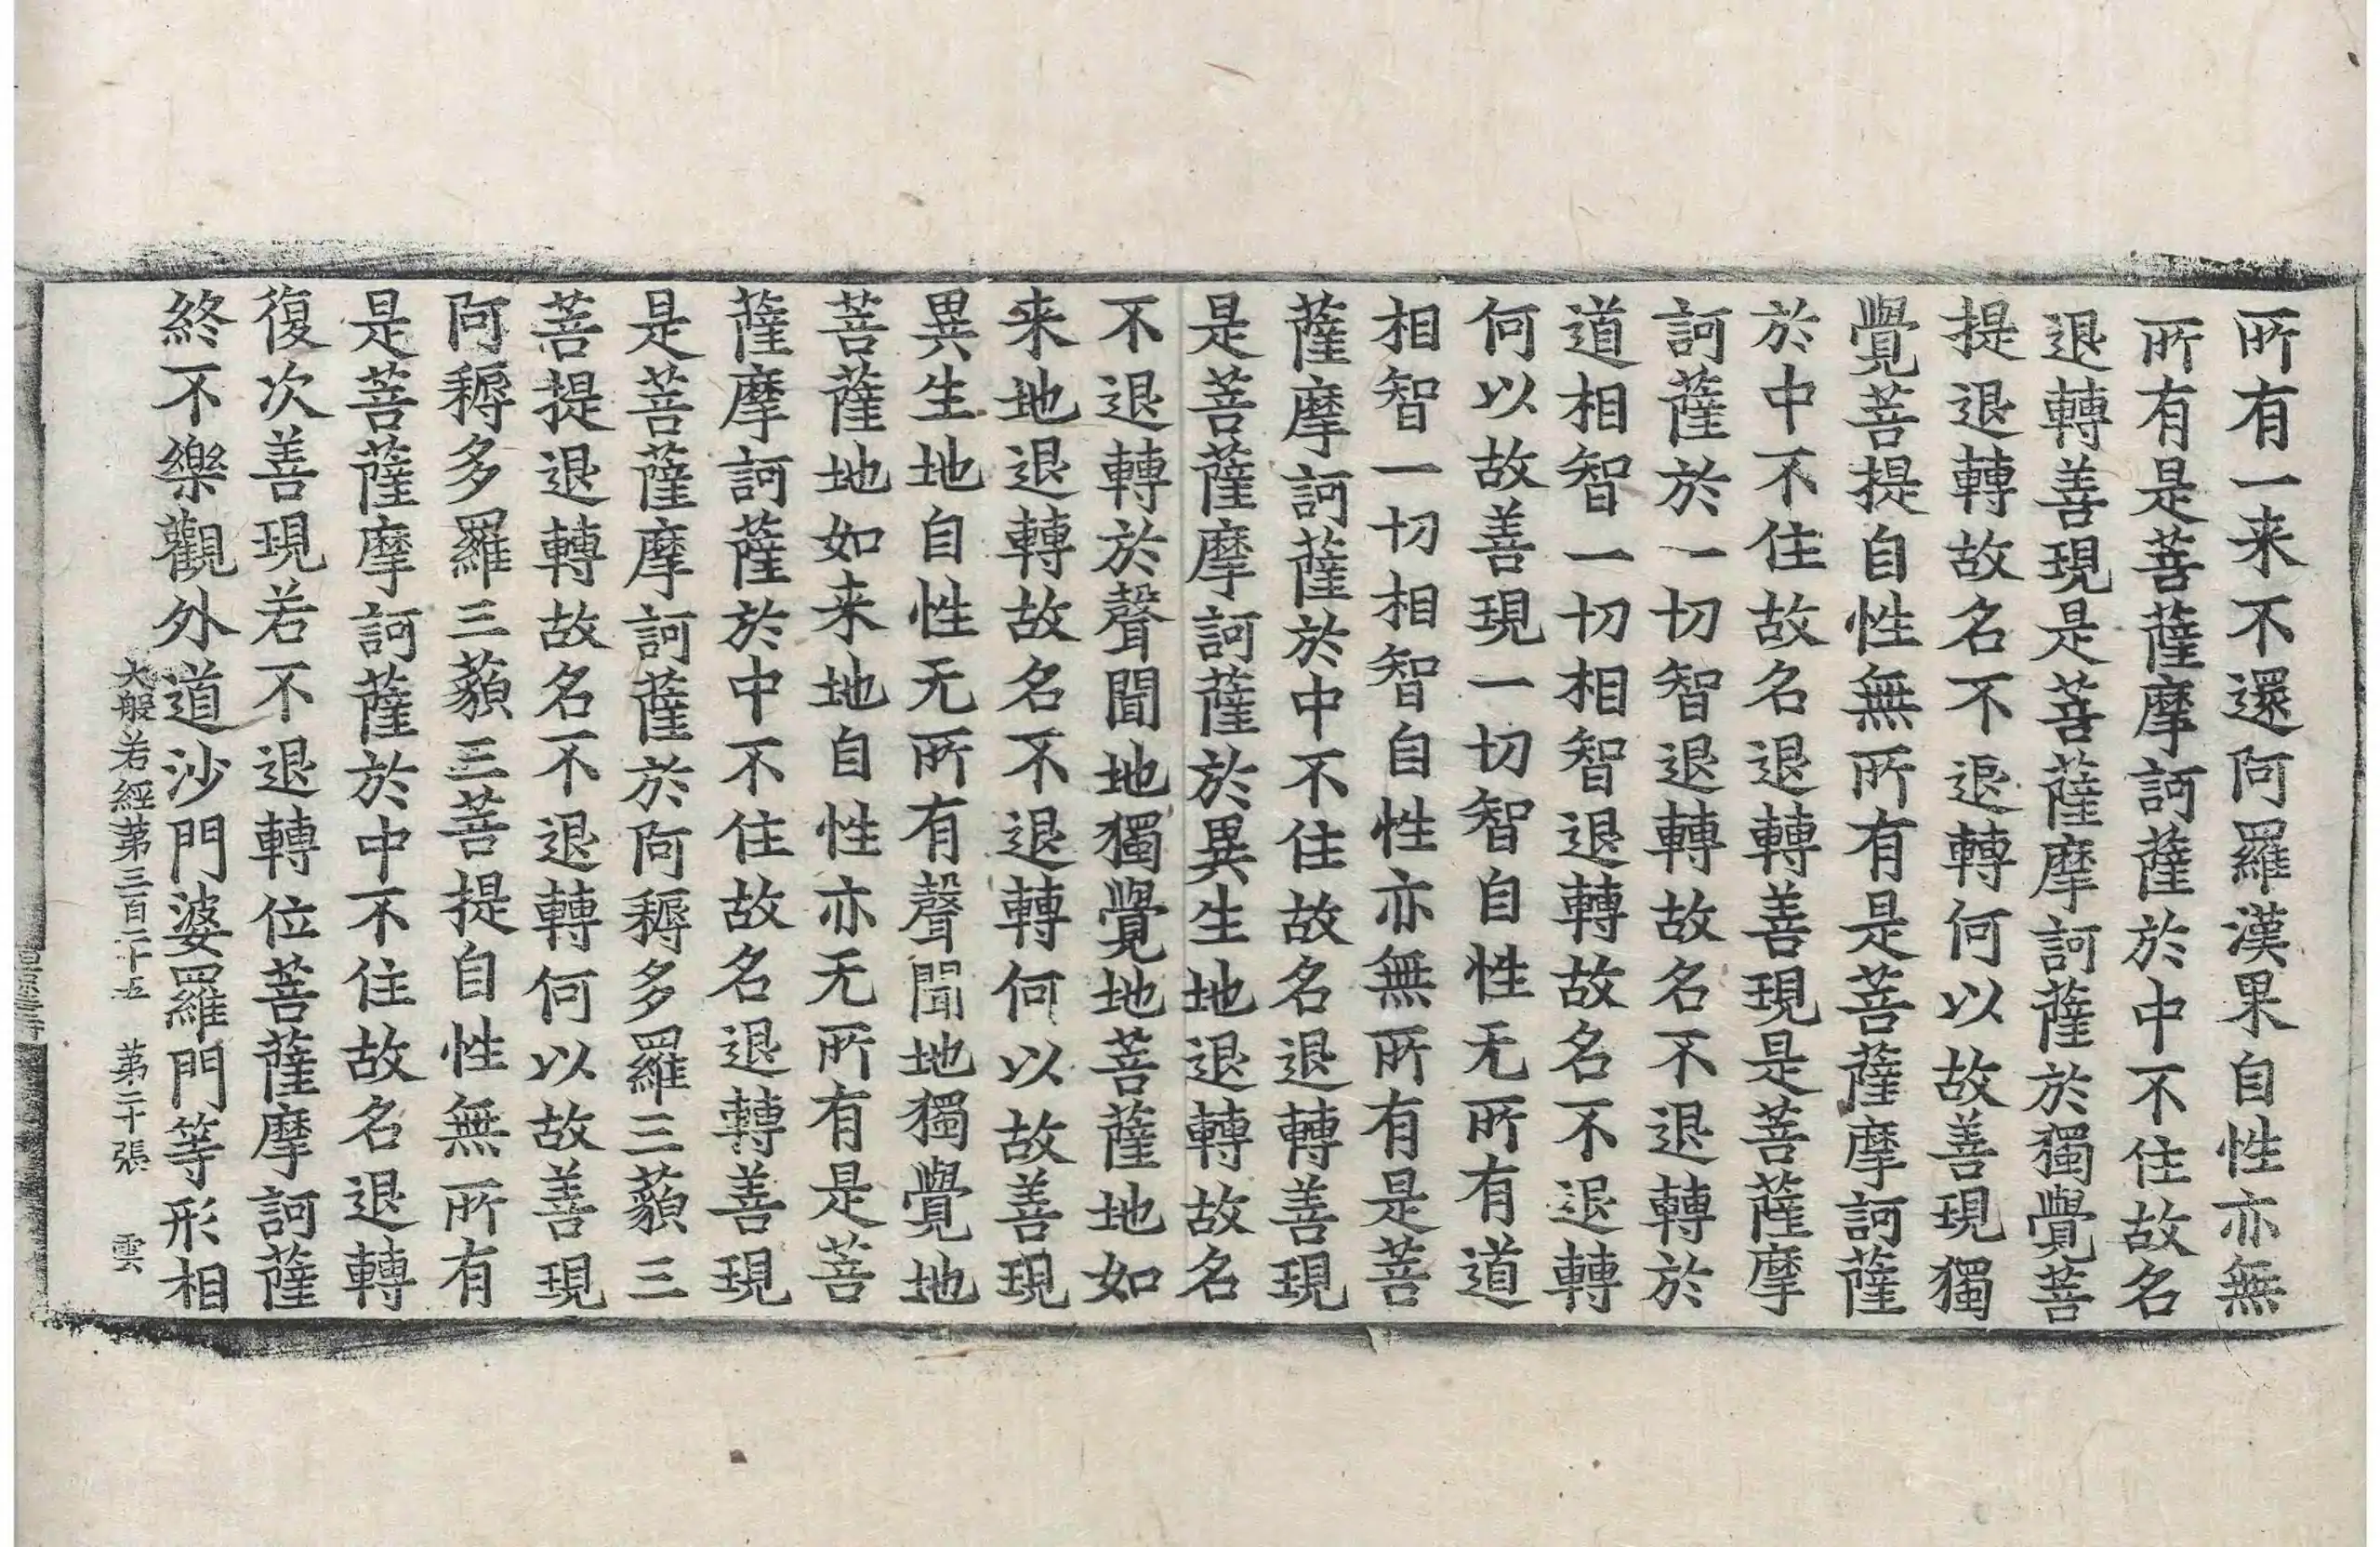 所有一来不還阿羅漢果自性亦無
所有是菩薩摩訶薩於中不住故名
退轉善現是菩薩摩訶薩於獨覺菩
提退轉故名不退轉何以故善現獨
覺菩提自性無所有是菩薩摩訶薩
於中不住故名退轉善現是菩薩摩
訶薩於一切智退轉故名不退轉於
道相智一切相智退轉故名不退轉
何以故善現一切智自性无所有道
相智一切相智自性亦無所有是菩
薩摩訶薩於中不住故名退轉善現
是菩薩摩訶薩於異生地退轉故名
不退轉於聲聞地獨覺地菩薩地如
来地退轉故名不退轉何以故善現
異生地自性无所有聲聞地獨覺地
菩薩地如来地自性亦无所有是菩
薩摩訶薩於中不住故名退轉善現
是菩薩摩訶薩於阿耨多羅三藐三
菩提退轉故名不退轉何以故善現
阿耨多羅三藐三菩提自性無所有
是菩薩摩訶薩於中不住故名退轉
復次善現若不退轉位菩薩摩訶薩
終不樂觀外道沙門婆羅門等形相
大般若經第三百二十五 第二十張 雲